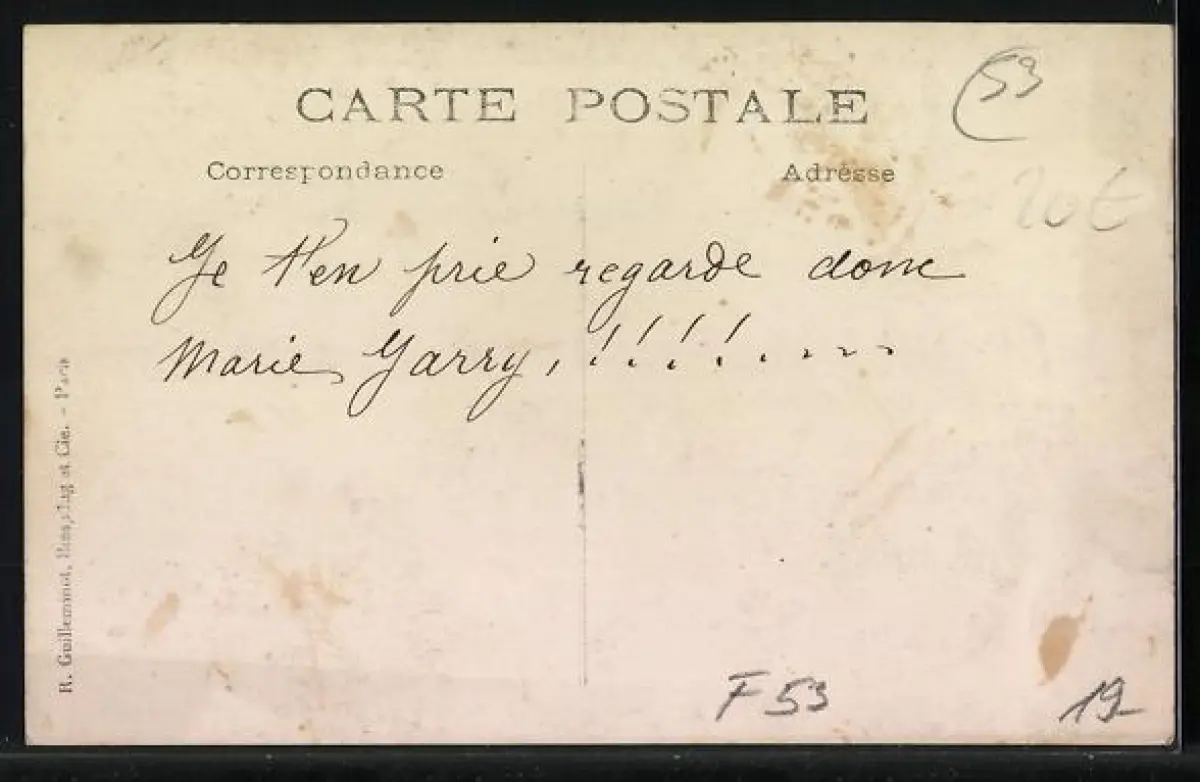 CARTE POSTALE
53
Correspondance
Adresse
20€
Je t'en prie regarde donc
Marie Garry, !!!!.....
R. Guilleminot, Bœspflug et Cie. - Paris
F 53
19-